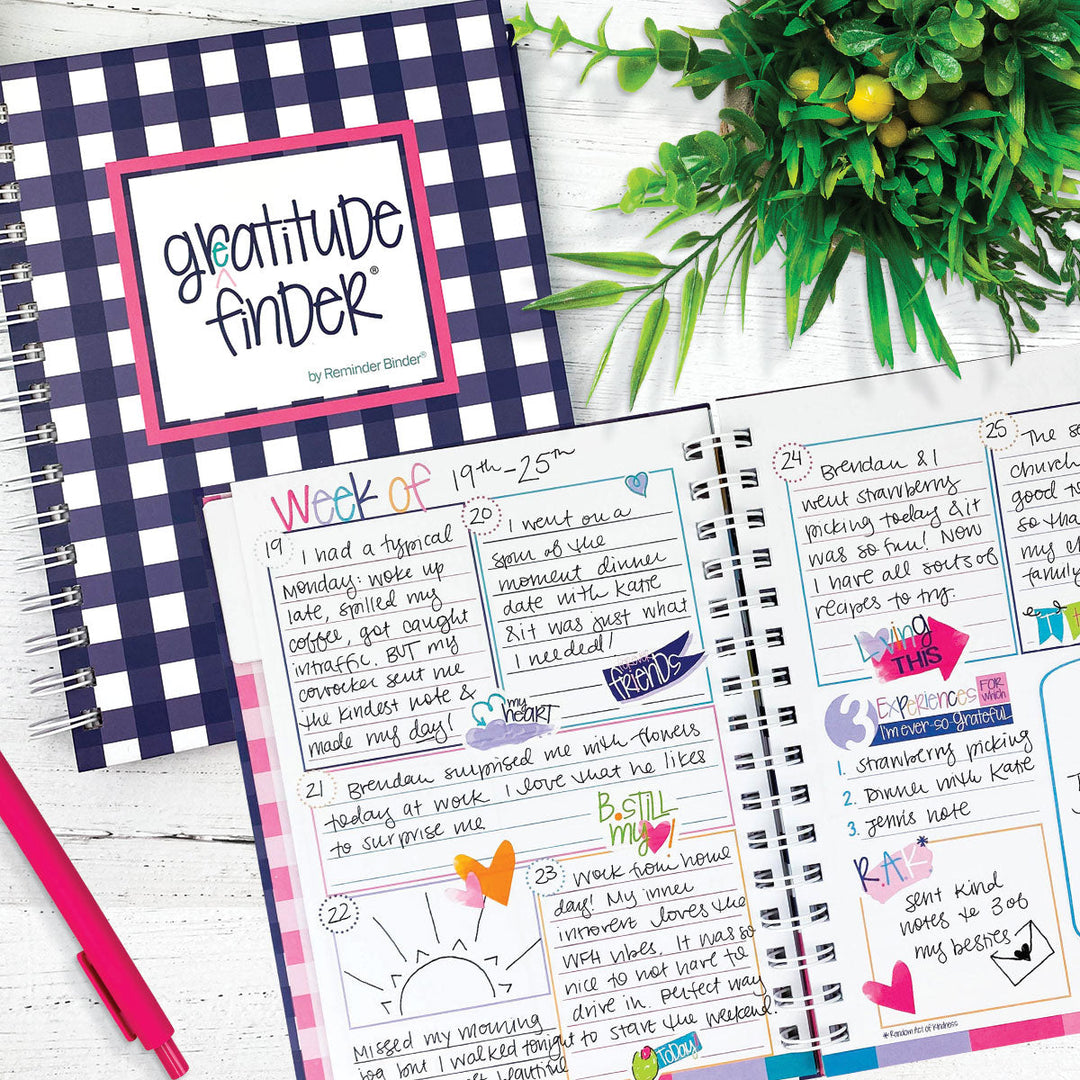 greatitude
finder®
by Reminder Binder®
Week of 19th-25th
19
I had a typical
Monday: woke up
late, spilled my
coffee, got caught
in traffic. BUT my
coworker sent me
the kindest note &
made my day!
my
heart
20
I went on a
spur of the
moment dinner
date with Katie
& it was just what
I needed!
friends
21
Brendan surprised me with flowers
today at work I love that he likes
to surprise me
B.STILL
my!
22
Missed my morning
jog but I walked tonight
beautiful
23
Work from home
day! My inner
introvert loves the
WFH vibes. It was so
nice to not have to
drive in. Perfect way
to start the weekend!
TODAY!
24
Brendan & I
went strawberry
picking today & it
was so fun! Now
I have all sorts of
recipes to try.
Loving
THIS
25
The
church
good
so tha
my
family
3 EXPERIENCES FOR which
I'm ever-so-grateful
1. Strawberry picking
2. Dinner with Katie
3. Jenn's note
R.A.K*
sent kind
notes to 3 of
my besties
*Random Act of Kindness